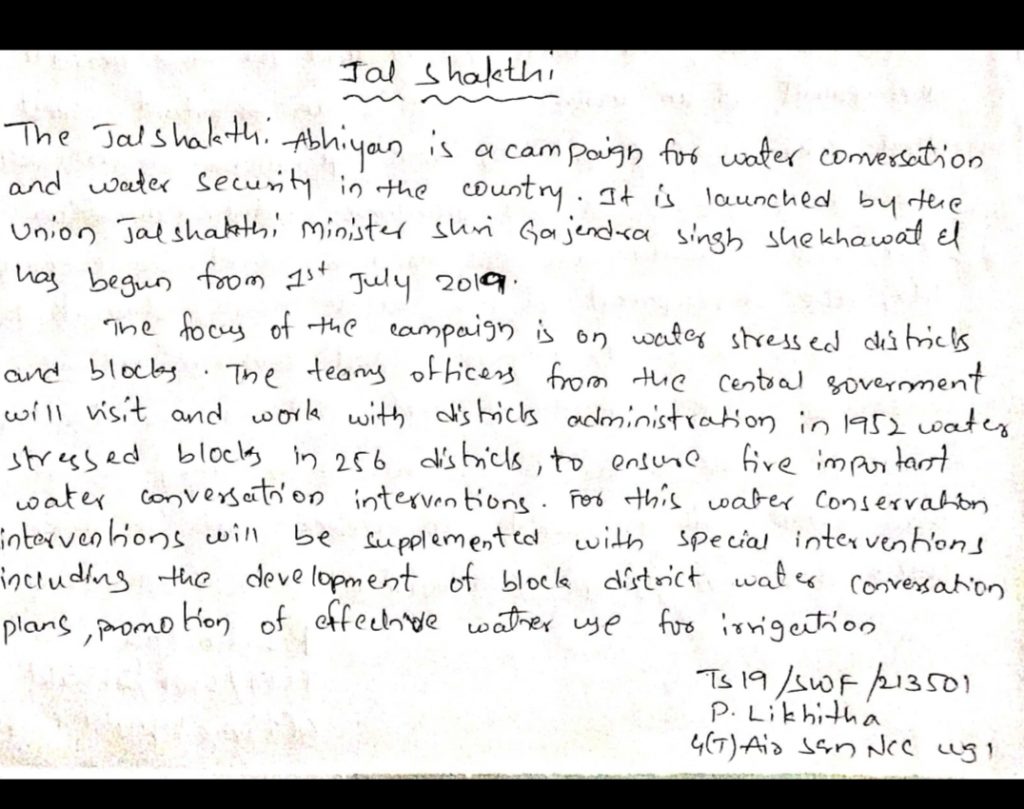 Jal Shakthi
The Jalshakthi Abhiyan is a campaign for water conversation
and water security in the country. It is launched by the
Union Jalshakthi Minister Shri Gajendra Singh Shekhawat &
has begun from 1st July 2019.
The focus of the campaign is on water stressed districts
and blocks. The teams officers from the central government
will visit and work with districts administration in 1952 water
stressed blocks in 256 districts, to ensure five important
water conversation interventions. For this water conservation
interventions will be supplemented with special interventions
including the development of block district water conversation
plans, promotion of effective wather use for irrigation
TS19/SWF/213501
P. Likhitha
4(T) Air Sqn NCC